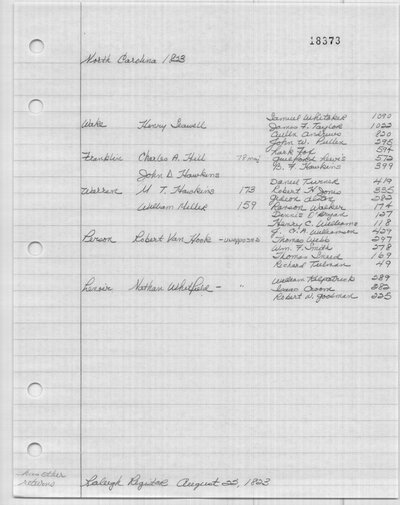 18373
North Carolina 1823
Samuel Whitaker 1090
Wake Henry Seawell James F. Taylor 1022
Allen Andrews 820
John W. Pullen 295
Lark Fox 594
Franklin Charles A. Hill 78 maj Guilford Lewis 572
John D. Hawkins B. F. Hawkins 399
Daniel Turner 419
Warren M. T. Hawkins 173 Robert H. Jones 335
282
William Miller 159 Ranson Walker 174
Dennis O'Bryan 127
Henry C. Williams 118
J. O. A. Williamson 429
Person Robert Van Hook - unopposed Thomas Webb 297
Wm. F. Smith 278
Thomas Sneed 169
Richard Tulman 49
Lenoir Nathan Whitfield - " William Kilpatrick 289
Isaac Croom 282
Robert W. Goodman 225
has other
returns
Raleigh Register August 22, 1823